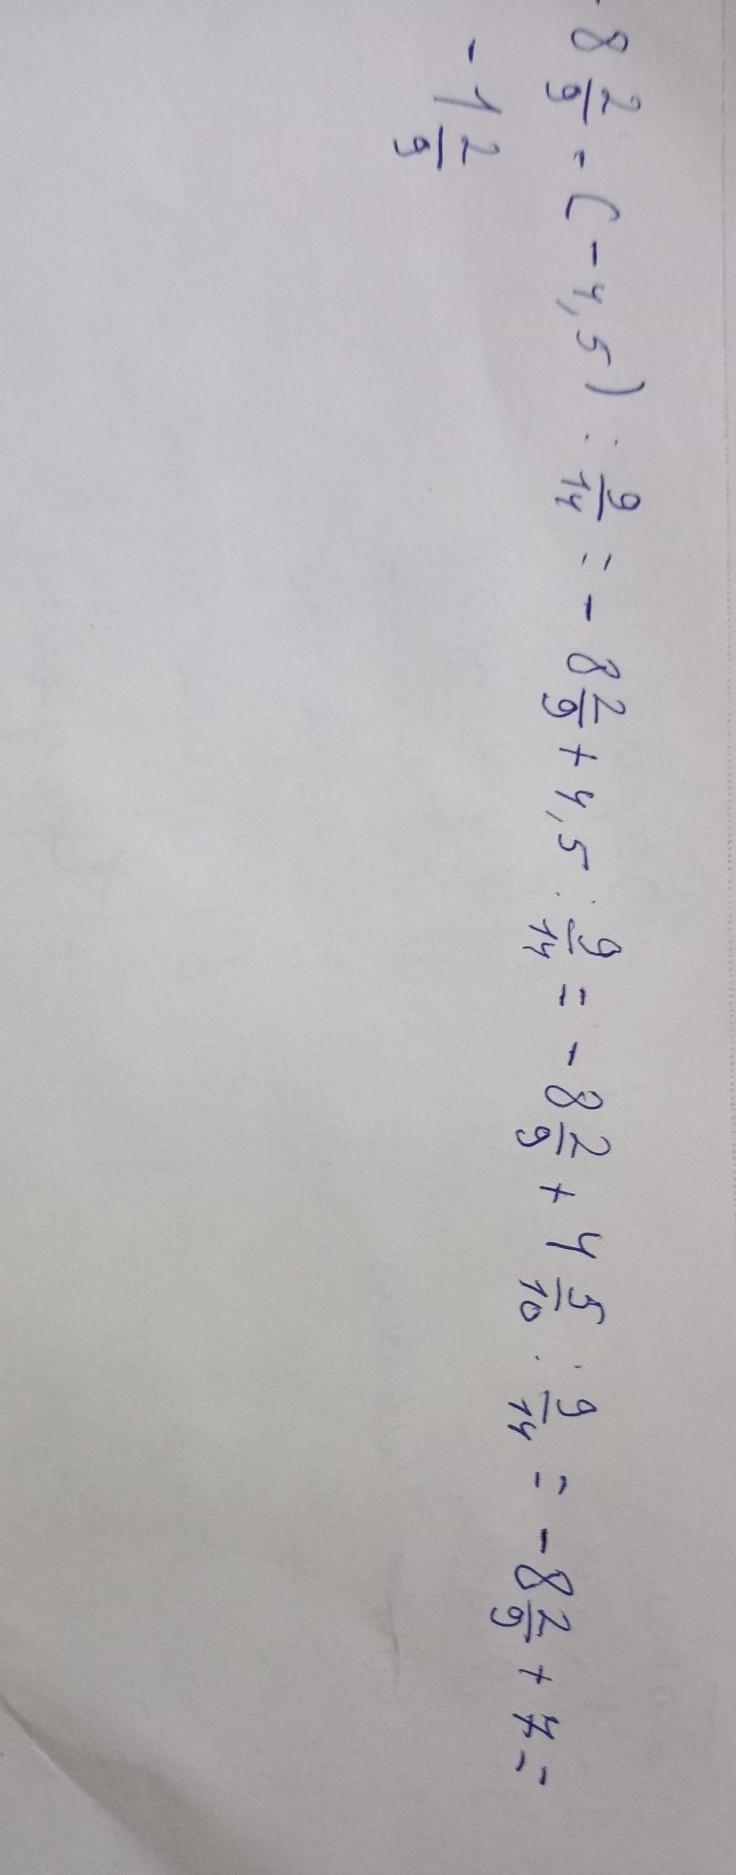 - 8 2/9 - (-4,5) : 9/14 = - 8 2/9 + 4,5 : 9/14 = - 8 2/9 + 4 5/10 : 9/14 = - 8 2/9 + 7 =
- 1 2/9